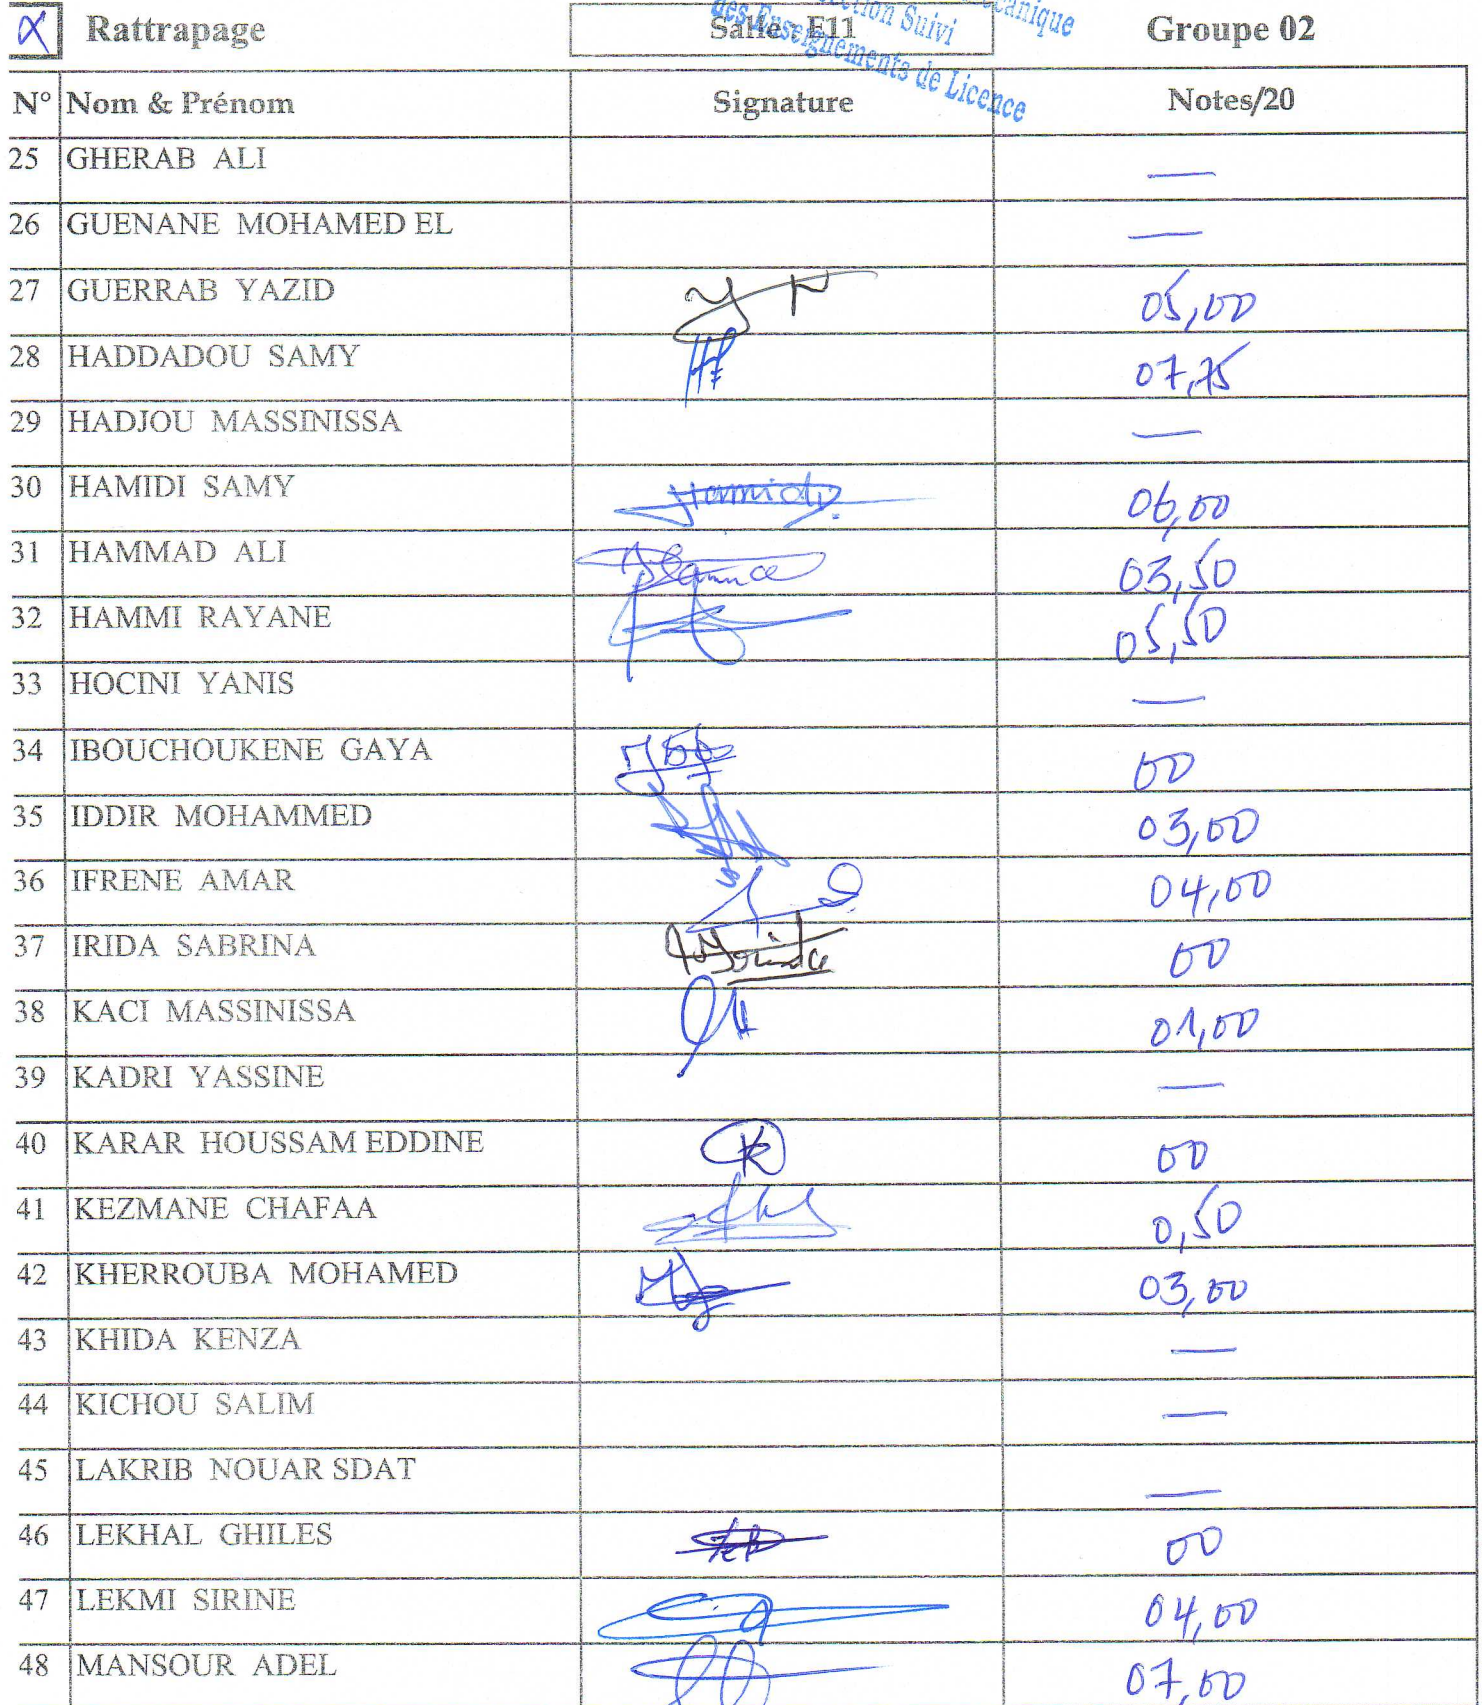 X Rattrapage Salle E11 Groupe 02
des Enseignements de Licence
N° Nom & Prénom Signature Notes/20
25 GHERAB ALI —
26 GUENANE MOHAMED EL —
27 GUERRAB YAZID 05,00
28 HADDADOU SAMY 07,75
29 HADJOU MASSINISSA —
30 HAMIDI SAMY Hamidi 06,00
31 HAMMAD ALI 03,50
32 HAMMI RAYANE 05,50
33 HOCINI YANIS —
34 IBOUCHOUKENE GAYA 00
35 IDDIR MOHAMMED 03,00
36 IFRENE AMAR 04,00
37 IRIDA SABRINA 00
38 KACI MASSINISSA 01,00
39 KADRI YASSINE —
40 KARAR HOUSSAM EDDINE 00
41 KEZMANE CHAFAA 0,50
42 KHERROUBA MOHAMED 03,00
43 KHIDA KENZA —
44 KICHOU SALIM —
45 LAKRIB NOUAR SDAT —
46 LEKHAL GHILES 00
47 LEKMI SIRINE 04,00
48 MANSOUR ADEL 07,00